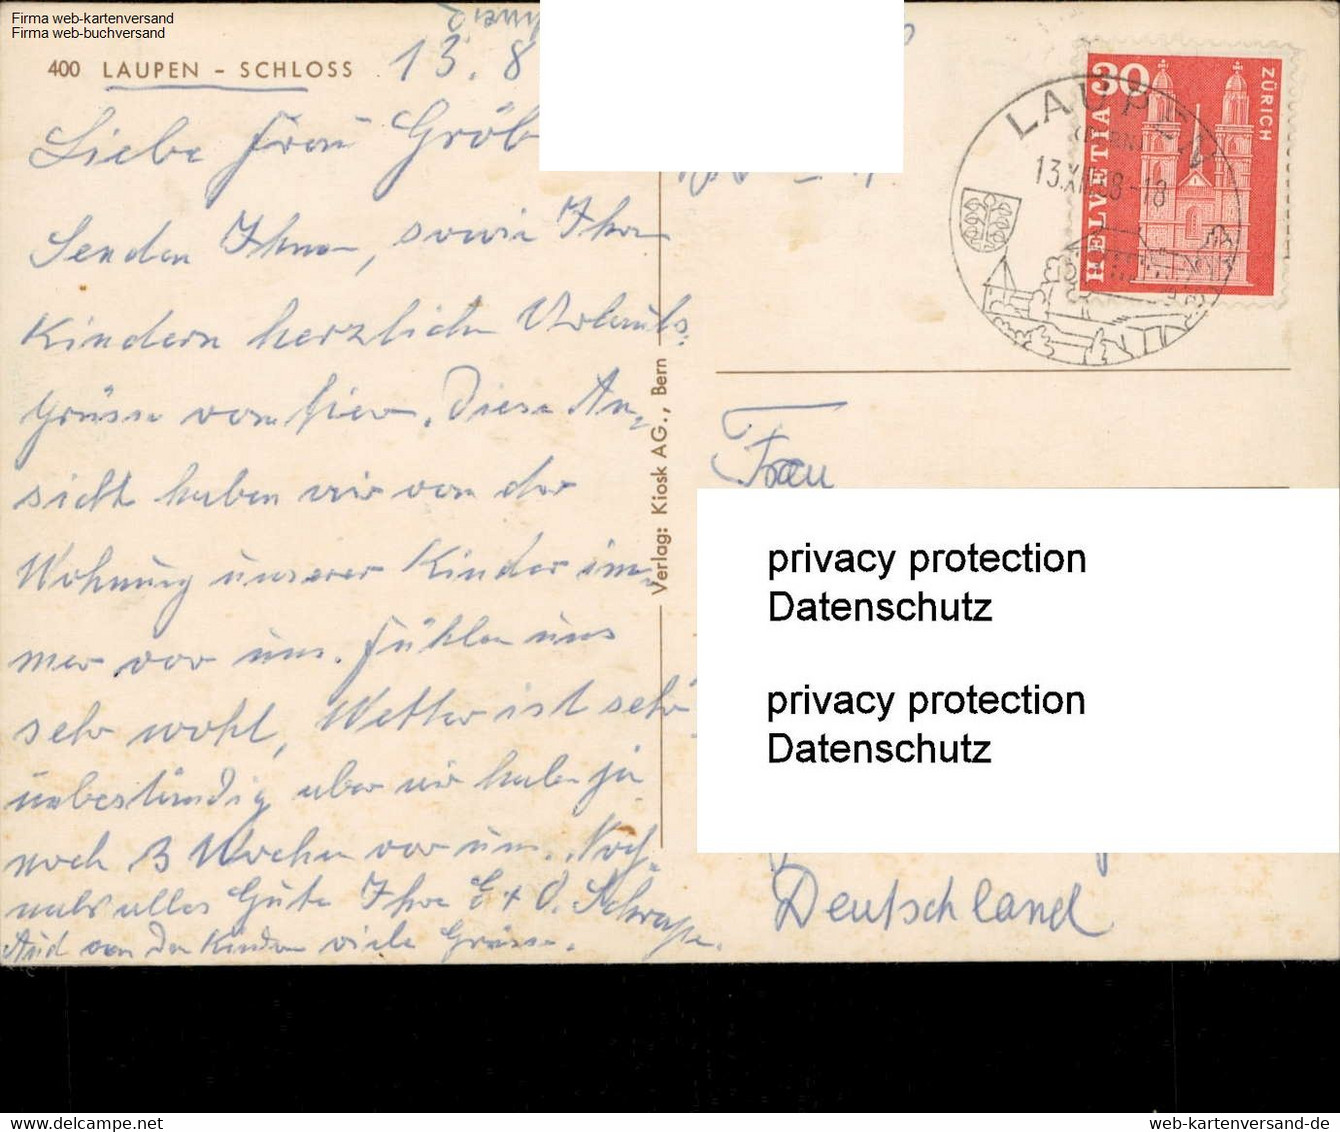 Firma web-kartenversand
Firma web-buchversand
400 LAUPEN – SCHLOSS
13. 8
Liebe Frau Gröb
Senden Ihnen, sowie Ihren
Kindern herzliche Urlaubs-
grüsse von hier. Diese An-
sicht haben wir von der
Wohnung unserer Kinder im-
mer vor uns. Fühlen uns
sehr wohl, Wetter ist sehr
unbeständig aber wir haben ja
noch 3 Wochen vor uns. Noch-
mals alles Gute Ihre E + O.
Auch von den Kindern viele Grüsse.
Verlag: Kiosk AG., Bern
LAUPEN
(BERN)
13.
-18
30
HELVETIA
ZÜRICH
Frau
privacy protection
Datenschutz
privacy protection
Datenschutz
Deutschland
www.akpool.de
web-kartenversand-de